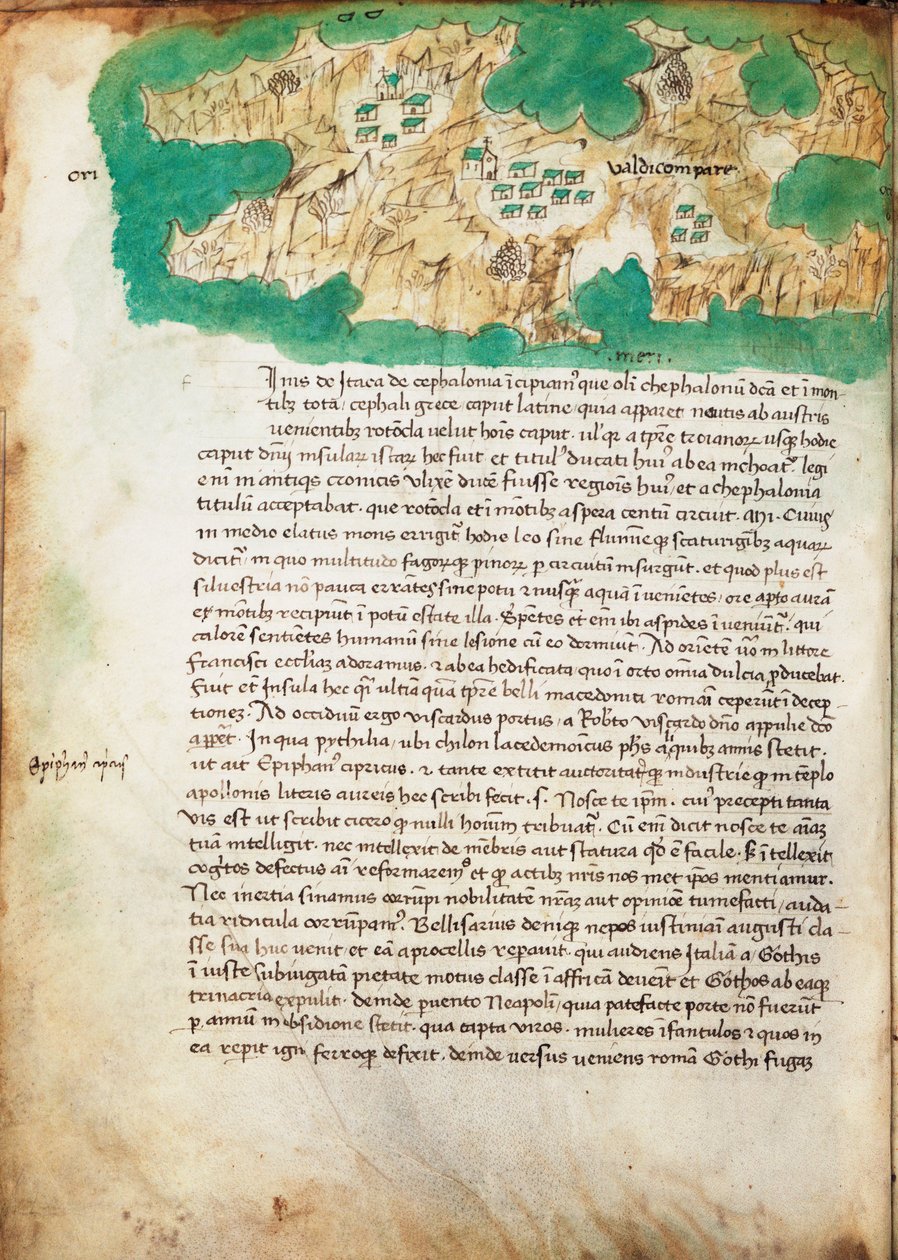 ori
valdicompare
.meri.
Inis de Itaca de cephalonia īcipiam᾽ que oli᷉ chephalonu᷉ dc̄a et i᷉ mon-
tibȝ totā, cephali grece, caput latine, quia apparet nautis ab austris
venientibȝ rotōda uelut hoīs caput. ul᾽ qꝛ a tp̄re troianoꝝ usqꝫ hodie
caput dn̄ij insulaꝝ istaꝝ hec fuit et titul᾽ ducati hui᾽ ab ea inchoat᾽. legi
enī in antiqs cronicis Vlixē ducē fuisse regiōis hui᾽, et a chephalonia
titulū acceptabat. que rotōda et ī mōtibȝ aspera centū circuit. Mi. Cuius
in medio elatus mons errigit᾽ hodie leo sine flumīeqꝫ scaturigībȝ aquaꝝ
dicit᾽, in quo multitudo fagorqꝫ pinoꝝ ꝑ circuitū insurgūt. et quod plus est
silvestria nō pauca errātes sine potu ⁊ nusqꝫ aquā ī venietes, ore apto aurā
ex mōtibȝ recipiūt ī potū estate illa. Spētes et enī ibi aspides ī veniūt᾽. qui
calorē sentiētes humanū sine lesione cū eo dormiūt. Ad orietē uo᷉ in littore
Francisci eccliaȝ adoramus. ⁊ ab ea hedificata, quo ī orto om̄ia dulcia ꝓducebat.
Fuit et᷉ Insula hec qi᷉ ultiā quā tp̄re belli macedonici romāi ceperūt ī decep-
tionez. Ad occiduū ergo viscardus portus, a Rob᾽to viscardo dn̄o appulie dc̄o
appet᾽. In qua pythilia, ubi chilon lacedemoīcus ph̄s aliquibȝ annis stetit.
ut ait Epiphan᾽ cipricus. ⁊ tante extitit auctoritat᾽qꝫ industrie qꝫ in tēplo
apollonis literis aureis hec scribi fecit. s. Nosce te ipm̄. cui᾽ precepti tanta
vis est ut scribit cicero qꝫ nulli hoīum tribuat᾽. Cū enī dicit nosce te aīaȝ
tuā intelligit. nec intellexit de mēbris aut statura qd᾽ ē facile. S ī tellexit
cog᾽tos defectus aī reformarem᾽ et qꝫ actibȝ nr̄is nos met ip̄os mentiamur.
Nec inertia sinamus corrūpi nobilitatē nr̄aȝ aut opinioē tumefacti, auda-
tia ridicula corrūpam᾽. Bellisarius deniqꝫ nepos iustiniāi augusti cla-
sse sua huc venit, et eā a procellis reparauit. qui audiens Italiā a Gothis
ī iuste subiugatā pietate motus classe ī affricā deuēit et Gothos ab eaqꝫ
trinacria expulit. deinde ꝑuento Neapolī, quia patefacte porte nō fuerūt
ꝑ annū in obsidione stetit. qua capta viros. mulieres īfantulos ⁊ quos in
ea reperit igni ferroqꝫ defixit. deinde versus veniens romā Gothi fugaȝ